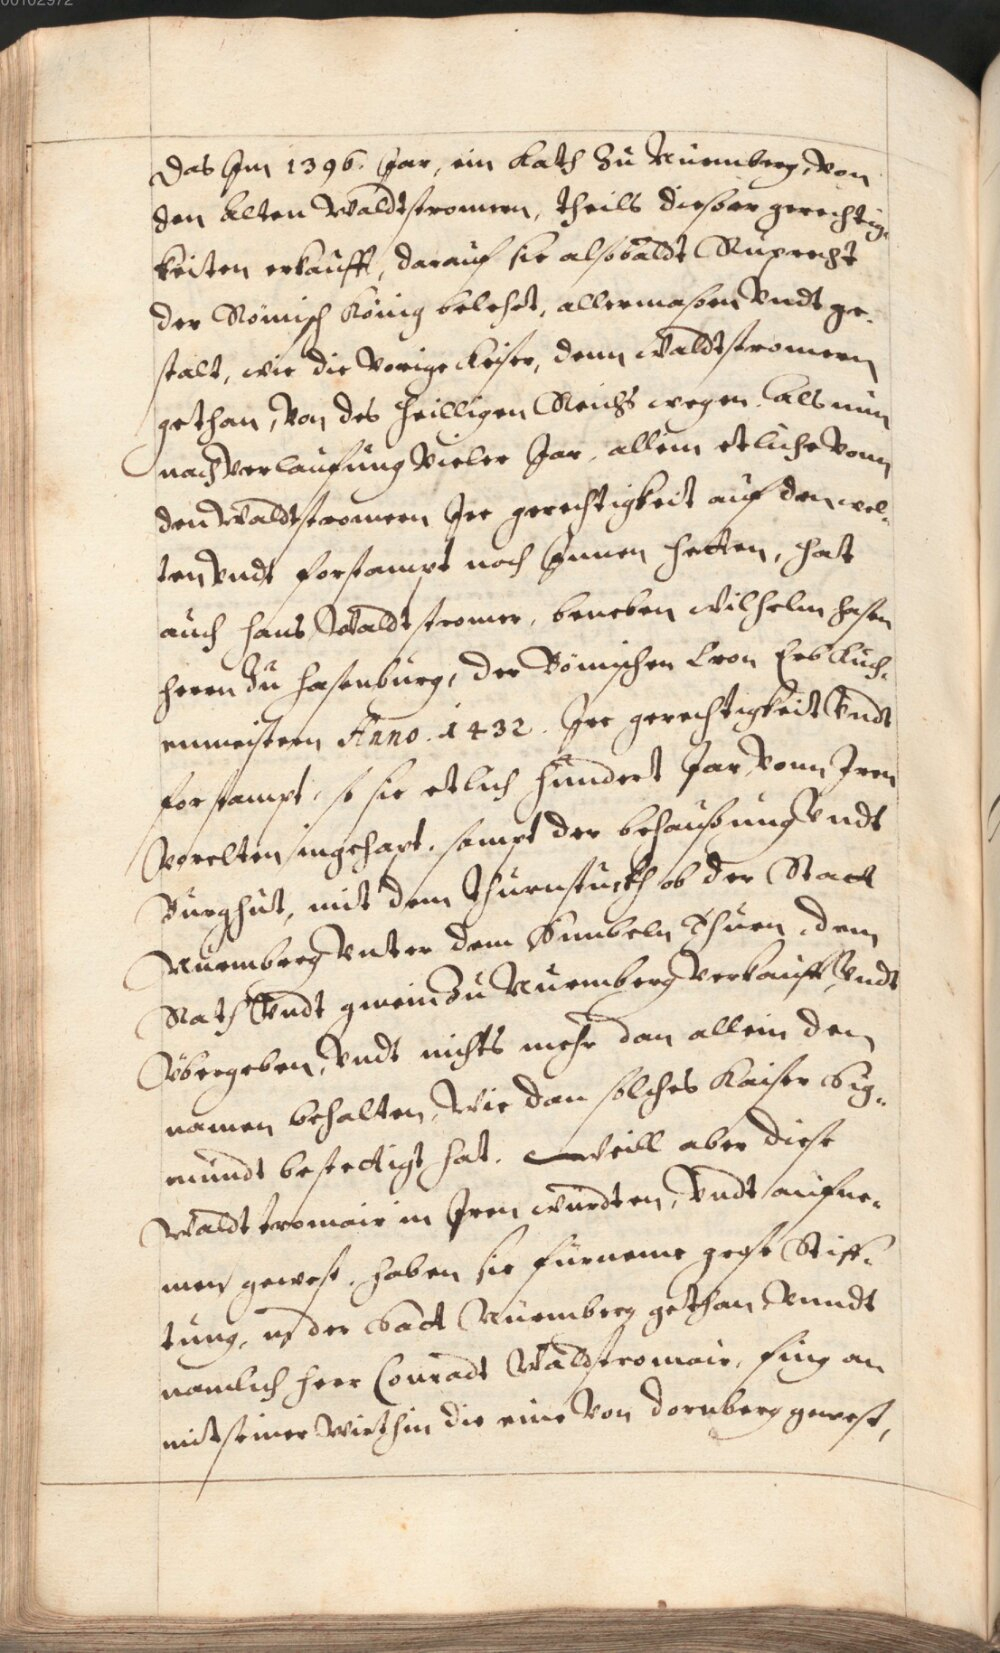 00102972
Das Im 1396. Jar, ein Rath zu Nurmberg, von
den Alten Waldtstromern, theils dießer gerechtig-
keiten erkaufft, darauf sie alsobaldt Ruprecht
der Römisch König belehet, allermaßen Vndt ge-
stalt, wie die Vorige Keiser, denn Waldtstromern
gethan, Von des Heilligen Reichs wegen. Als nun
nach Verlaufung Vieler Jar, allein etliche Vonn
den Waldtstromern Jre gerechtigkeit auf den wel-
ten Vndt forstampt noch Jnnen hetten, hatt
auch Hans Waldtstromer, beneben Wilhelm Hasen
herrn zu Hasenburg, der Bömischen Cron Erb Kuch-
enmeistern Anno. 1432. Jre gerechtigkeit Vndt
forstampt, so sie etlich Hundert Jar, Vonn Jren
Vorelten ingehapt. sampt der behaußung Vndt
Burghut, mit dem Thurnstuckh ob der Statt
Nurmberg Vnter dem Sinbeln Thurn, dem
Rath Vndt gmein zu Nurmberg Verkaufft, Vndt
Vbergeben, Vndt nichts mehr dan allein den
namen behalten, Wie dan solches Kaiser Sig-
mundt bestettigt hat. Weill aber diese
Waldtstromair in Jren wurdten, Vndt aufne-
men gewest. haben sie fürneme grose Stiff-
tung, in der Satt Nurmberg gethan Vnndt
namlich Herr Conradt Waldstromair, fing an
mit seiner Wirthin die eine Von Dornberg gewest,